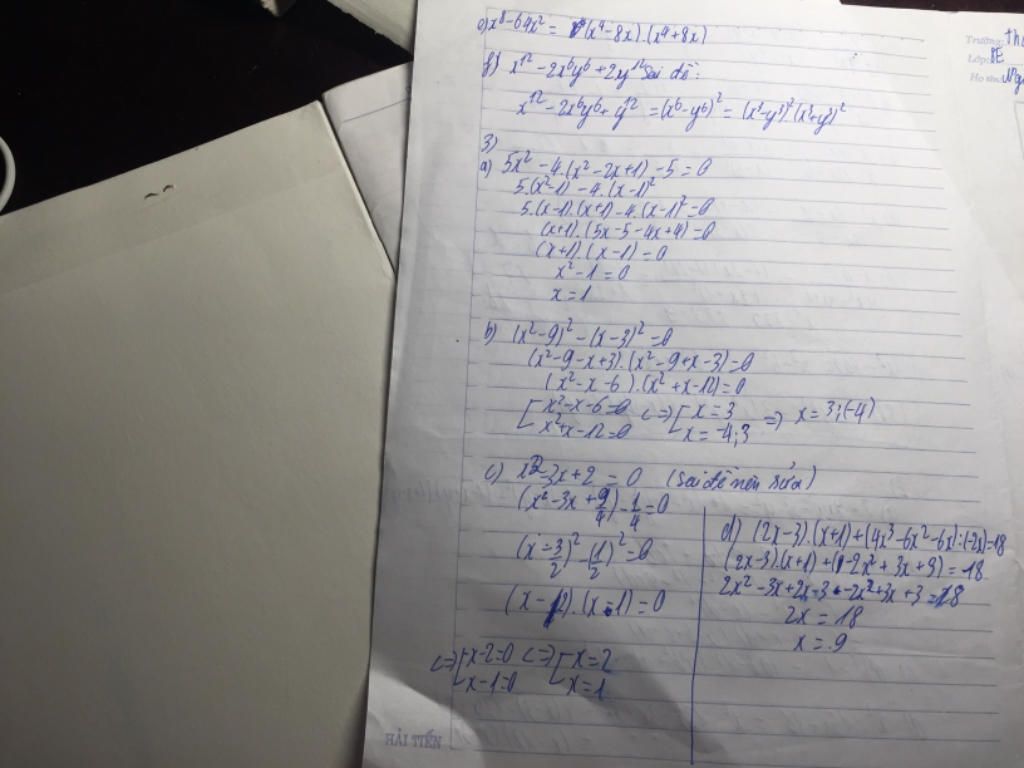 e) x⁸ - 64x² = (x⁴ - 8x).(x⁴ + 8x)
Trường: th
Lớp: 8E
Họ tên: Ng
f) x¹² - 2x⁶y⁶ + 2y¹² Sai đề:
x¹² - 2x⁶y⁶ + y¹² = (x⁶ - y⁶)² = (x³ - y³)².(x³ + y³)²
3)
a) 5x² - 4.(x² - 2x + 1) - 5 = 0
5.(x² - 1) - 4.(x - 1)²
5.(x - 1).(x + 1) - 4.(x - 1)² = 0
(x + 1).(5x - 5 - 4x + 4) = 0
(x + 1).(x - 1) = 0
x² - 1 = 0
x = 1
b) (x² - 9)² - (x - 3)² = 0
(x² - 9 - x + 3).(x² - 9 + x - 3) = 0
(x² - x - 6).(x² + x - 12) = 0
[x² - x - 6 = 0 <=> [x = 3 => x = 3; (-4)
x² + x - 12 = 0 x = -4; 3
c) x² - 3x + 2 = 0 (Sai đề nên sửa)
(x² - 3x + 9/4) - 1/4 = 0
(x - 3/2)² - (1/2)² = 0
(x - 2).(x - 1) = 0
<=> [x - 2 = 0 <=> [x = 2
x - 1 = 0 x = 1
d) (2x - 3).(x + 1) + (4x³ - 6x² - 6x) : (-2x) = 18
(2x - 3).(x + 1) + (-2x² + 3x + 3) = 18
2x² - 3x + 2x - 3 + -2x² + 3x + 3 = 18
2x = 18
x = 9
HẢI TIẾN